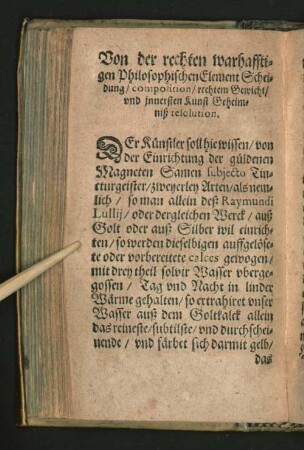 Von der rechten warhaffti-
gen Philosophischen Element Schei-
dung/ composition/ rechtem Gewicht/
vnd jnnersten Kunst Geheim-
niß resolution.
DEr Künstler soll hie wissen/ von
der Einrichtung der güldenen
Magneten Samen subjecto Tin-
cturgeister/ zweyerley Arten/ als nem-
lich / so man allein deß Raymundi
Lullij/ oder dergleichen Werck/ auß
Golt oder auß Silber wil einrich-
ten/ so werden dieselbigen auffgelöse-
te oder vorbereitete calces gewogen/
mit drey theil solvir Wasser vberge-
gossen / Tag vnd Nacht in linder
Wärme gehalten/ so extrahiret vnser
Wasser auß dem Goltkalck allein
das reineste/ subtilste/ vnd durchschei-
nende / vnd färbet sich darmit gelb/
das